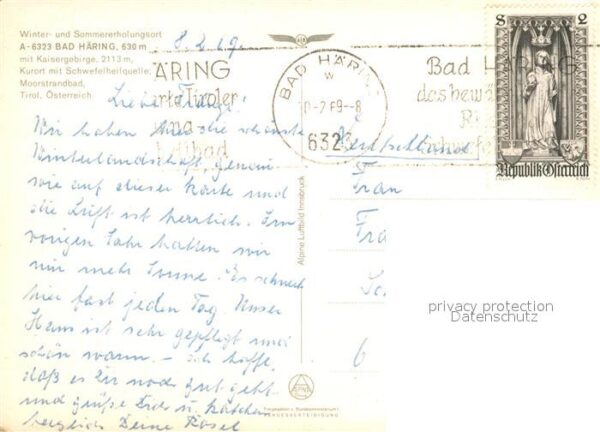 Winter- und Sommererholungsort
A-6323 BAD HÄRING, 630 m
mit Kaisergebirge, 2113 m,
Kurort mit Schwefelheilquelle,
Moorstrandbad,
Tirol, Österreich
8.2.69.
ÄRING
Tiroler
BAD HÄRING
w
-2 69-8
6323
Bad HÄRING
das bewä
S 2
Republik Österreich
Liebe
Wir haben hier die schönste
Winterlandschaft, genau
wie auf dieser Karte und
die Luft ist herrlich. Im
vorigen Jahr hatten wir
nur mehr Sonne. Es schneit
hier fast jeden Tag. Unser
Haus ist sehr gepflegt und
schön warm. – Ich hoffe,
daß es Dir noch gut geht
und grüße Dich u. Kätchen
herzlich Deine Rosel
Deutschland
Frau
Fra
6
Alpine Luftbild Innsbruck
privacy protection
Datenschutz